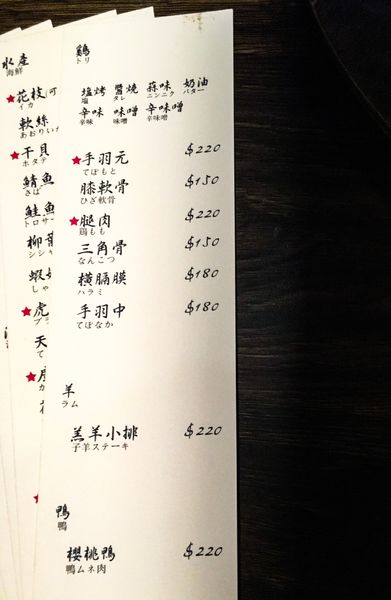 水產
海鮮
★花枝
イカ
軟絲
あおりい
★干貝
ホタテ
鯖魚
さば
鮭魚
トロサー
柳葉
シシ
蝦
しゃ
★虎
ブラ
天
て
★月
カ
鷄
トリ
塩烤 醬燒 蒜味 奶油
塩 タレ ニンニク バター
辛味 味噌 辛味噌
辛味 味噌 辛味噌
★手羽元 $220
てばもと
膝軟骨 $150
ひざ軟骨
★腿肉 $220
鶏もも
三角骨 $150
なんこつ
橫膈膜 $180
ハラミ
手羽中 $180
てばなか
羊
ラム
羔羊小排 $220
子羊ステーキ
鴨
鴨
櫻桃鴨 $220
鴨ムネ肉